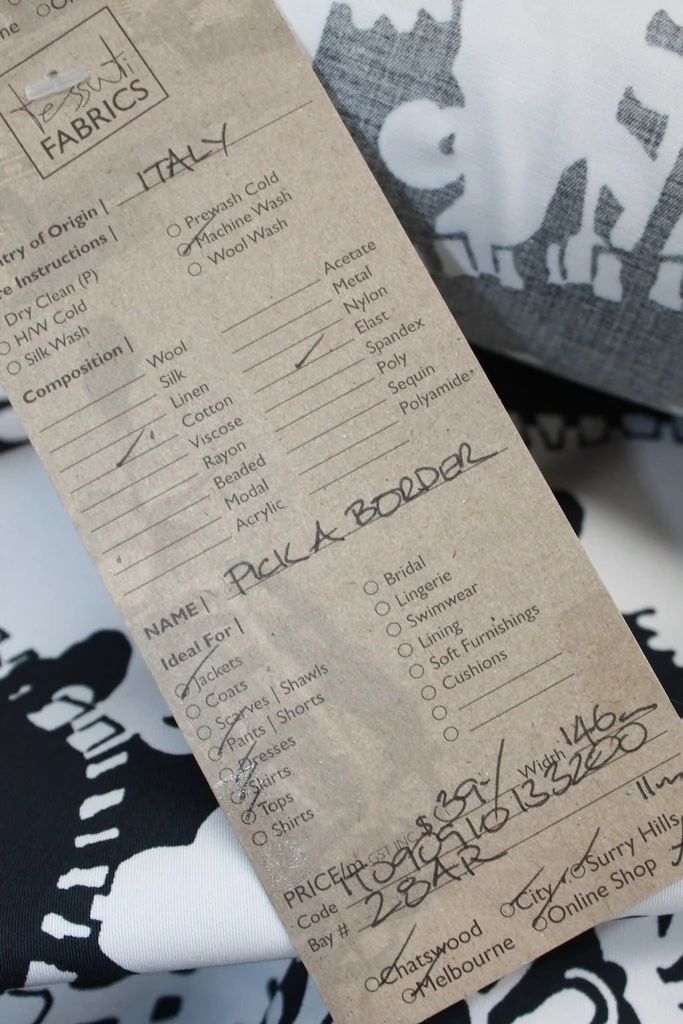 tessuti
FABRICS
ITALY
Prewash Cold
Machine Wash
Wool Wash
Dry Clean (P)
H/W Cold
Silk Wash
Composition |
Wool
Silk
Linen
Cotton
Viscose
Rayon
Beaded
Modal
Acrylic
Acetate
Metal
Nylon
Elast
Spandex
Poly
Sequin
Polyamide
NAME | PICK A BORDER
Ideal For |
Jackets
Coats
Scarves | Shawls
Pants | Shorts
Dresses
Skirts
Tops
Shirts
Bridal
Lingerie
Swimwear
Lining
Soft Furnishings
Cushions
PRICE/m GST INC $39-/ Width 146
Code
Bay # 28AR
Chatswood
City
Surry Hills
Melbourne
Online Shop